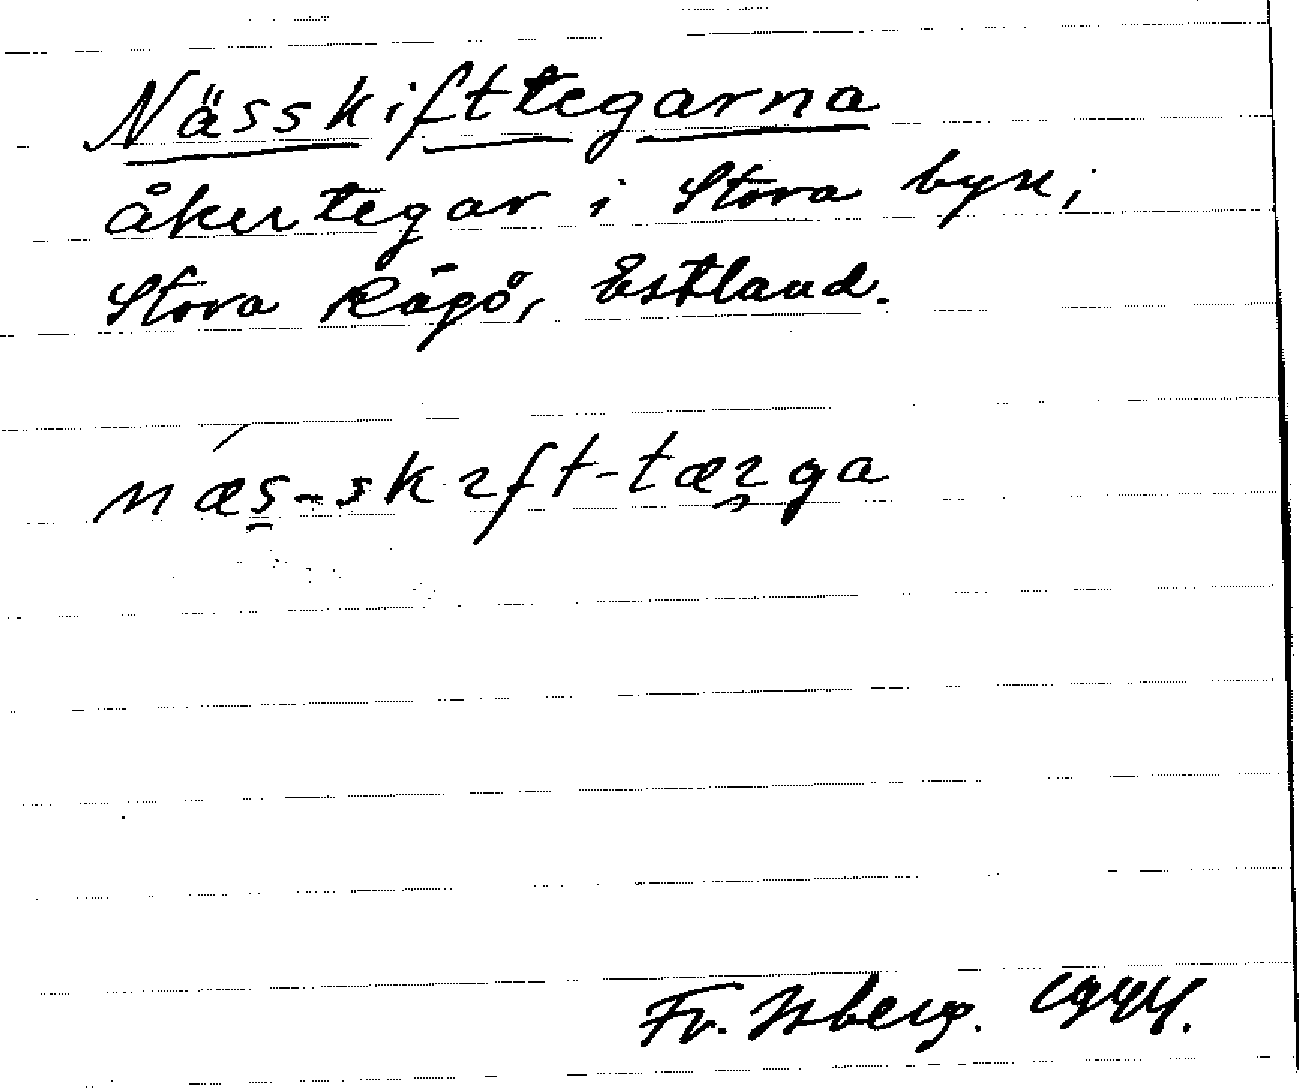 Nässkifttegarna
åkertegar i Stora byn,
Stora Rågö, Estland.
næs-skɪft-tæɪga
Fr. Isberg. 1944.